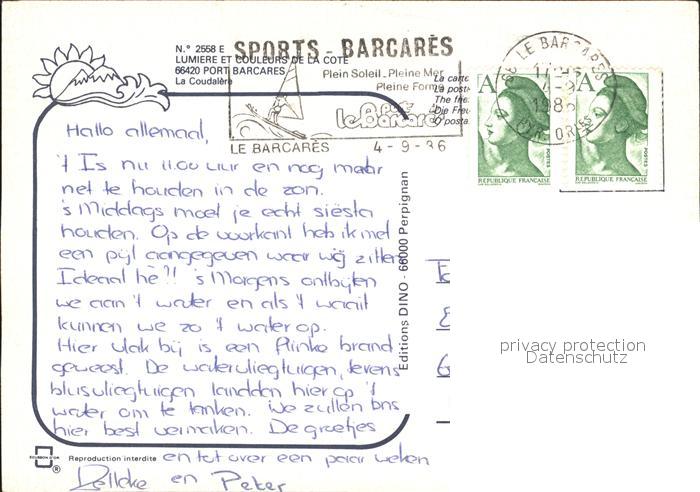 N.° 2558 E
LUMIERE ET COULEURS DE LA COTE
66420 PORT BARCARES
La Coudalère
SPORTS - BARCARÈS
Plein Soleil - Pleine Mer
Pleine Forme
port
le Barcarès
LE BARCARÈS 4-9-86
66 LE BARCARES
17H
4-9
1986
PYR. ORES
La carte
La post
The fre
Die Fre
O posta
A
REPUBLIQUE FRANÇAISE
POSTES
A
REPUBLIQUE FRANÇAISE
POSTES
Hallo allemaal,
't Is nu 11.00 uur en nog maar
net te houden in de zon.
's Middags moet je echt siësta
houden. Op de voorkant heb ik met
een pijl aangegeven waar wij zitten
Ideaal hè?! 's Morgens ontbijten
we aan 't water en als 't waait
kunnen we zo 't water op.
Hier vlak bij is een flinke brand
geweest. De watervliegtuigen, tevens
blusvliegtuigen landden hier op 't
water om te tanken. We zullen ons
hier best vermaken. De groetjes
en tot over een paar weken
en Peter
Editions DINO - 66000 Perpignan
Reproduction interdite
®
privacy protection
Datenschutz